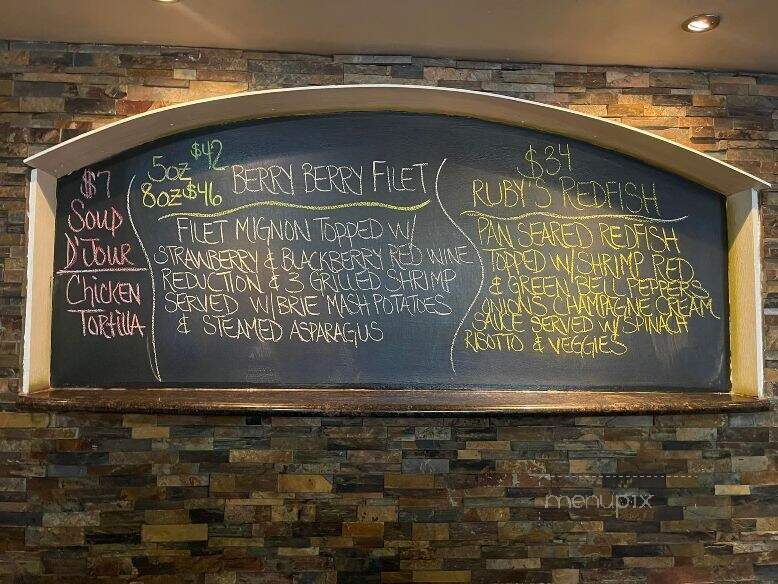 $7
Soup
D'Jour
Chicken
Tortilla
5oz $42
8oz $46
Berry Berry Filet
Filet Mignon Topped w/
Strawberry & Blackberry Red Wine
Reduction & 3 Grilled Shrimp
Served w/ Brie Mash Potatoes
& Steamed Asparagus
$34
Ruby's Redfish
Pan Seared Redfish
Topped w/ Shrimp, Red
& Green Bell Peppers
Onions Champagne Cream
Sauce Served w/ Spinach
Risotto & Veggies
menupix